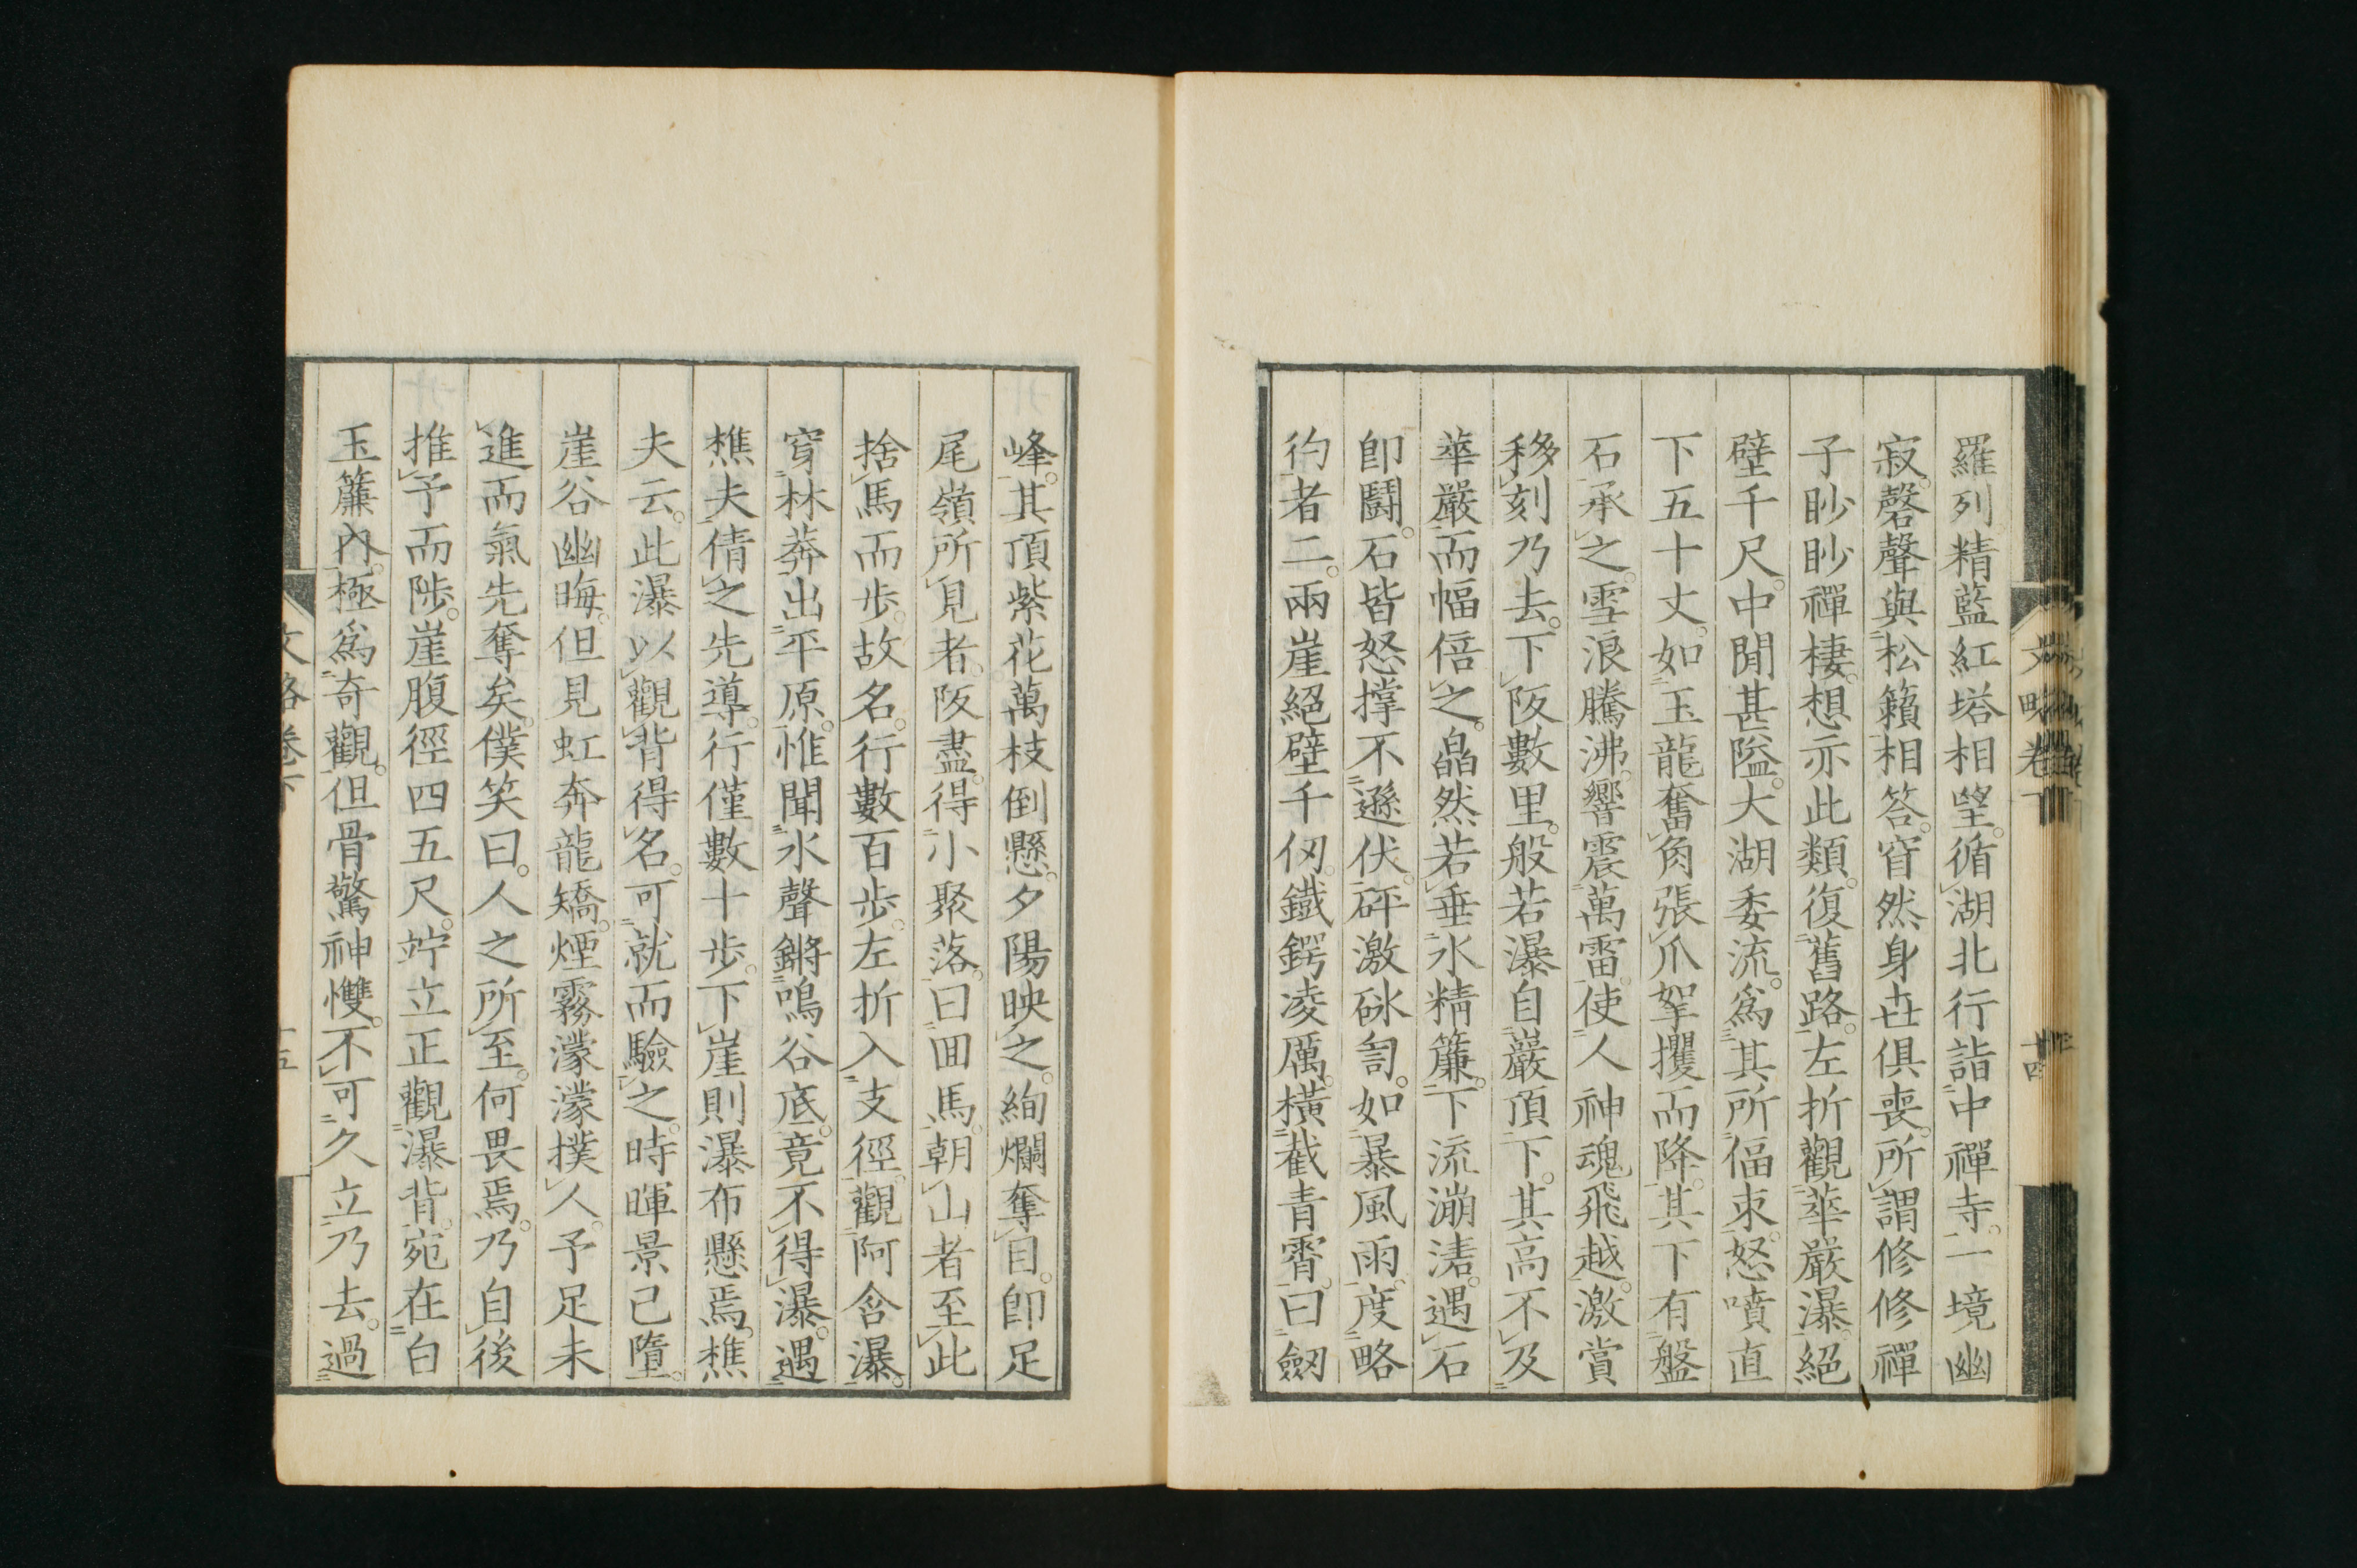 羅列。精藍紅塔相望。循湖北行詣中禪寺。一境幽
寂。磬聲與松籟相答。窅然身世俱喪。所謂修修禪
子眇眇禪棲。想亦此類。復舊路。左折觀華嚴瀑。絕
壁千尺。中開甚隘。大湖委流。爲其所偪束。怒噴直
下五十丈。如玉龍奮角張爪挐攫而降。其下有盤
石承之。雪浪騰沸。響震萬雷。使人神魂飛越。激賞
移刻乃去。下阪數里。般若瀑自巖頂下。其高不及
華嚴而幅倍之。皛然若垂水精簾。下流漰濞。遇石
卽鬪。石皆怒撑不遜伏。砰激砯訇。如暴風雨。度略
彴者二。兩崖絕壁千仞。鐵鍔凌厲。橫截青霄。曰劒
文略卷下
十四
峰。其頂紫花萬枝倒懸。夕陽映之。絢爛奪目。卽足
尾嶺所見者。阪盡。得小聚落。曰囬馬。朝山者至此
捨馬而步。故名。行數百步。左折入支徑。觀阿含瀑。
穿林莽出平原。惟聞水聲鏘鳴谷底。竟不得瀑。遇
樵夫倩之先導。行僅數十步。下崖則瀑布懸焉。樵
夫云。此瀑以觀背得名。可就而驗之。時暉景已墮。
崖谷幽晦。但見虹奔龍矯。煙霧濛濛撲人。予足未
進而氣先奪矣。僕笑曰。人之所至。何畏焉。乃自後
推予而陟。崖腹徑四五尺。竚立正觀瀑背。宛在白
玉簾內。極爲奇觀。但骨驚神悚。不可久立。乃去。過
文略卷下
十五